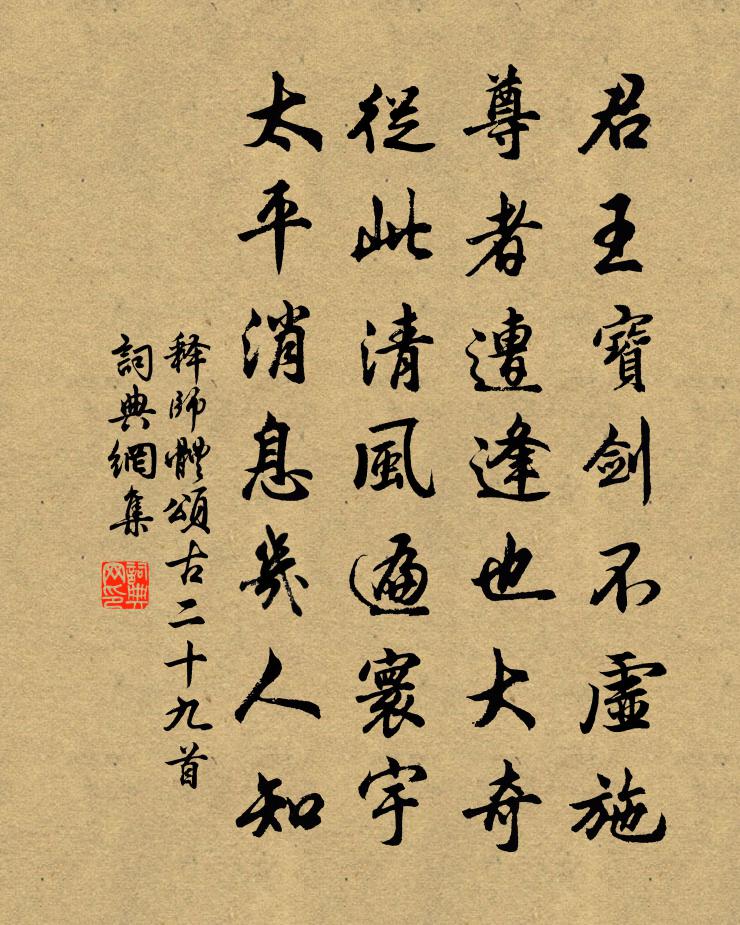 君王寶劍不虛施
尊者遭逢也大奇
從此清風遍寰宇
太平消息幾人知
释師體頌古二十九首
詞典網集
詞典网印